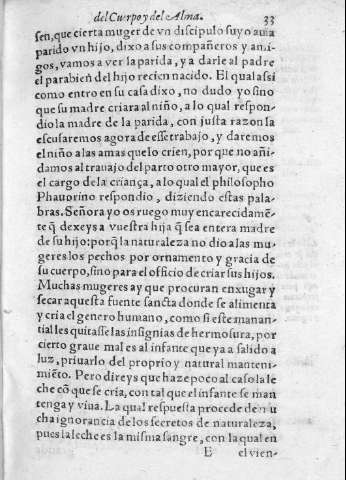 del Cuerpo y del Alma. 33
sen, que cierta muger de vn discipulo suyo auia
parido vn hijo, dixo a sus compañeros y ami-
gos, vamos a ver la parida, y a darle al padre
el parabien del hijo recien nacido. El qual assi
como entro en su casa dixo, no dudo yo sino
que su madre criara al niño, a lo qual respon-
dio la madre de la parida, con justa razon la
escusaremos agora de esse trabajo, y daremos
el niño a las amas que lo crien, por que no añi-
damos al trauajo del parto otro mayor, que es
el cargo de la criança, a lo qual el philosopho
Phauorino respondio, diziendo estas pala-
bras. Señora yo os ruego muy encarecidamẽ-
te q̃ dexeys a vuestra hija q̃ sea entera madre
de su hijo: porq̃ la naturaleza no dio a las mu-
geres los pechos por ornamento y gracia de
su cuerpo, sino para el officio de criar sus hijos.
Muchas mugeres ay que procuran enxugar y
secar aquesta fuente sancta donde se alimenta
y cria el genero humano, como si este manan-
tial les quitasse las insignias de hermosura, por
cierto graue mal es al infante que ya a salido a
luz, priuarlo del proprio y natural manteni-
miẽto. Pero direys que haze poco al caso la le
che cõ que se cria, con tal que el infante se man
tenga y viua. La qual respuesta procede de mu
cha ignorancia de los secretos de naturaleza,
pues la leche es la misma sangre, con la qual en
E el vien-